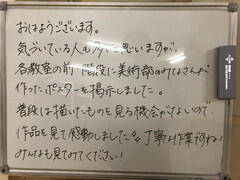 おはようございます。
気づいている人も多いと思いますが、
各教室の前や階段に美術部のみなさんが
作ったポスターを掲示しました。
普段は描いたものを見る機会がないので、
作品を見て感動しました。丁寧な作業ですね!
みんなも見てみてください!